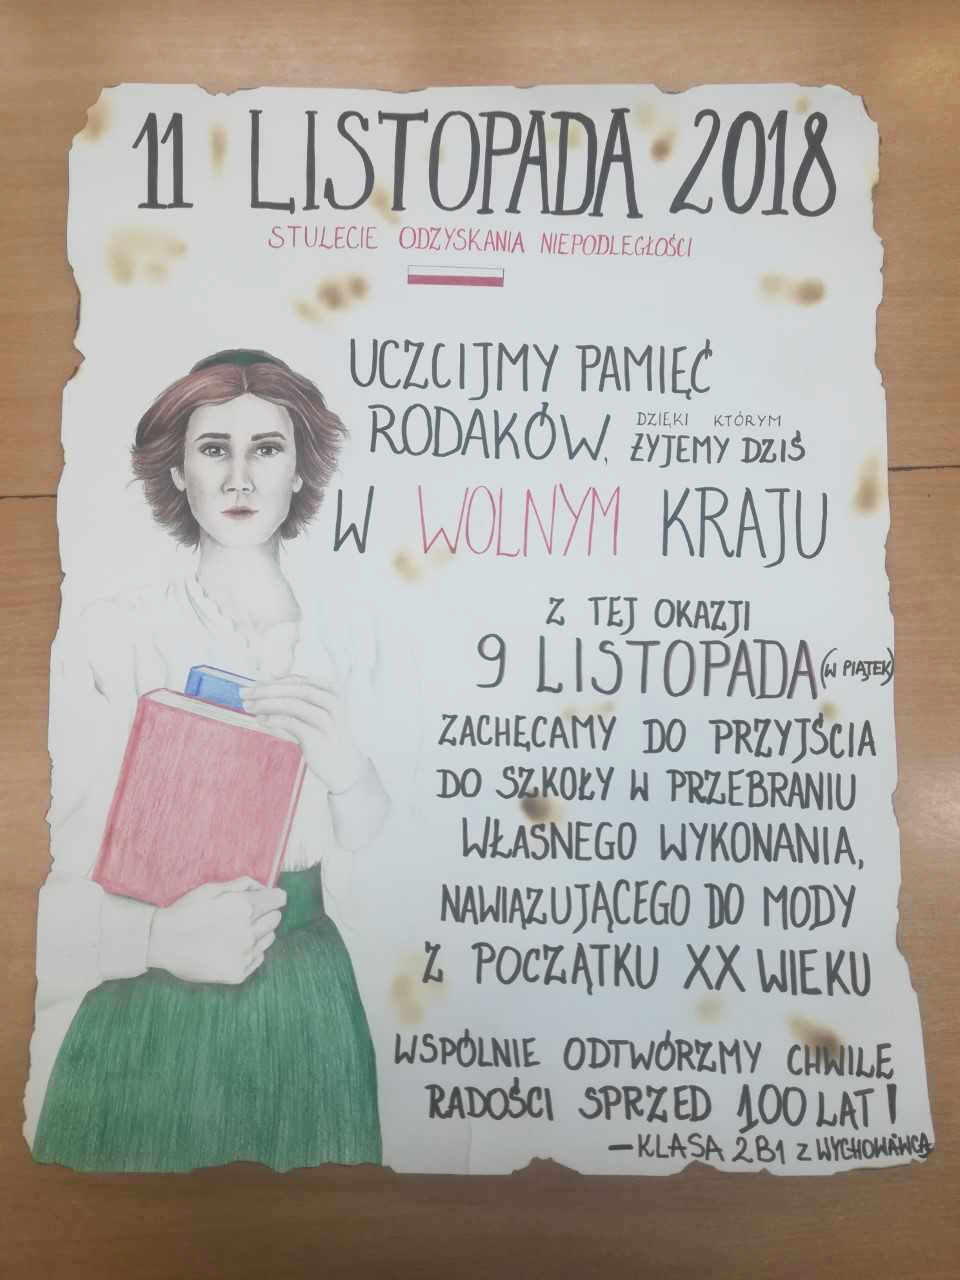 11 LISTOPADA 2018
STULECIE ODZYSKANIA NIEPODLEGŁOŚCI
UCZCIJMY PAMIĘĆ
RODAKÓW, DZIĘKI KTÓRYM
ŻYJEMY DZIŚ
W WOLNYM KRAJU
Z TEJ OKAZJI
9 LISTOPADA (W PIĄTEK)
ZACHĘCAMY DO PRZYJŚCIA
DO SZKOŁY W PRZEBRANIU
WŁASNEGO WYKONANIA,
NAWIĄZUJĄCEGO DO MODY
Z POCZĄTKU XX WIEKU
WSPÓLNIE ODTWÓRZMY CHWILE
RADOŚCI SPRZED 100 LAT!
– KLASA 2B1 Z WYCHOWAWCĄ